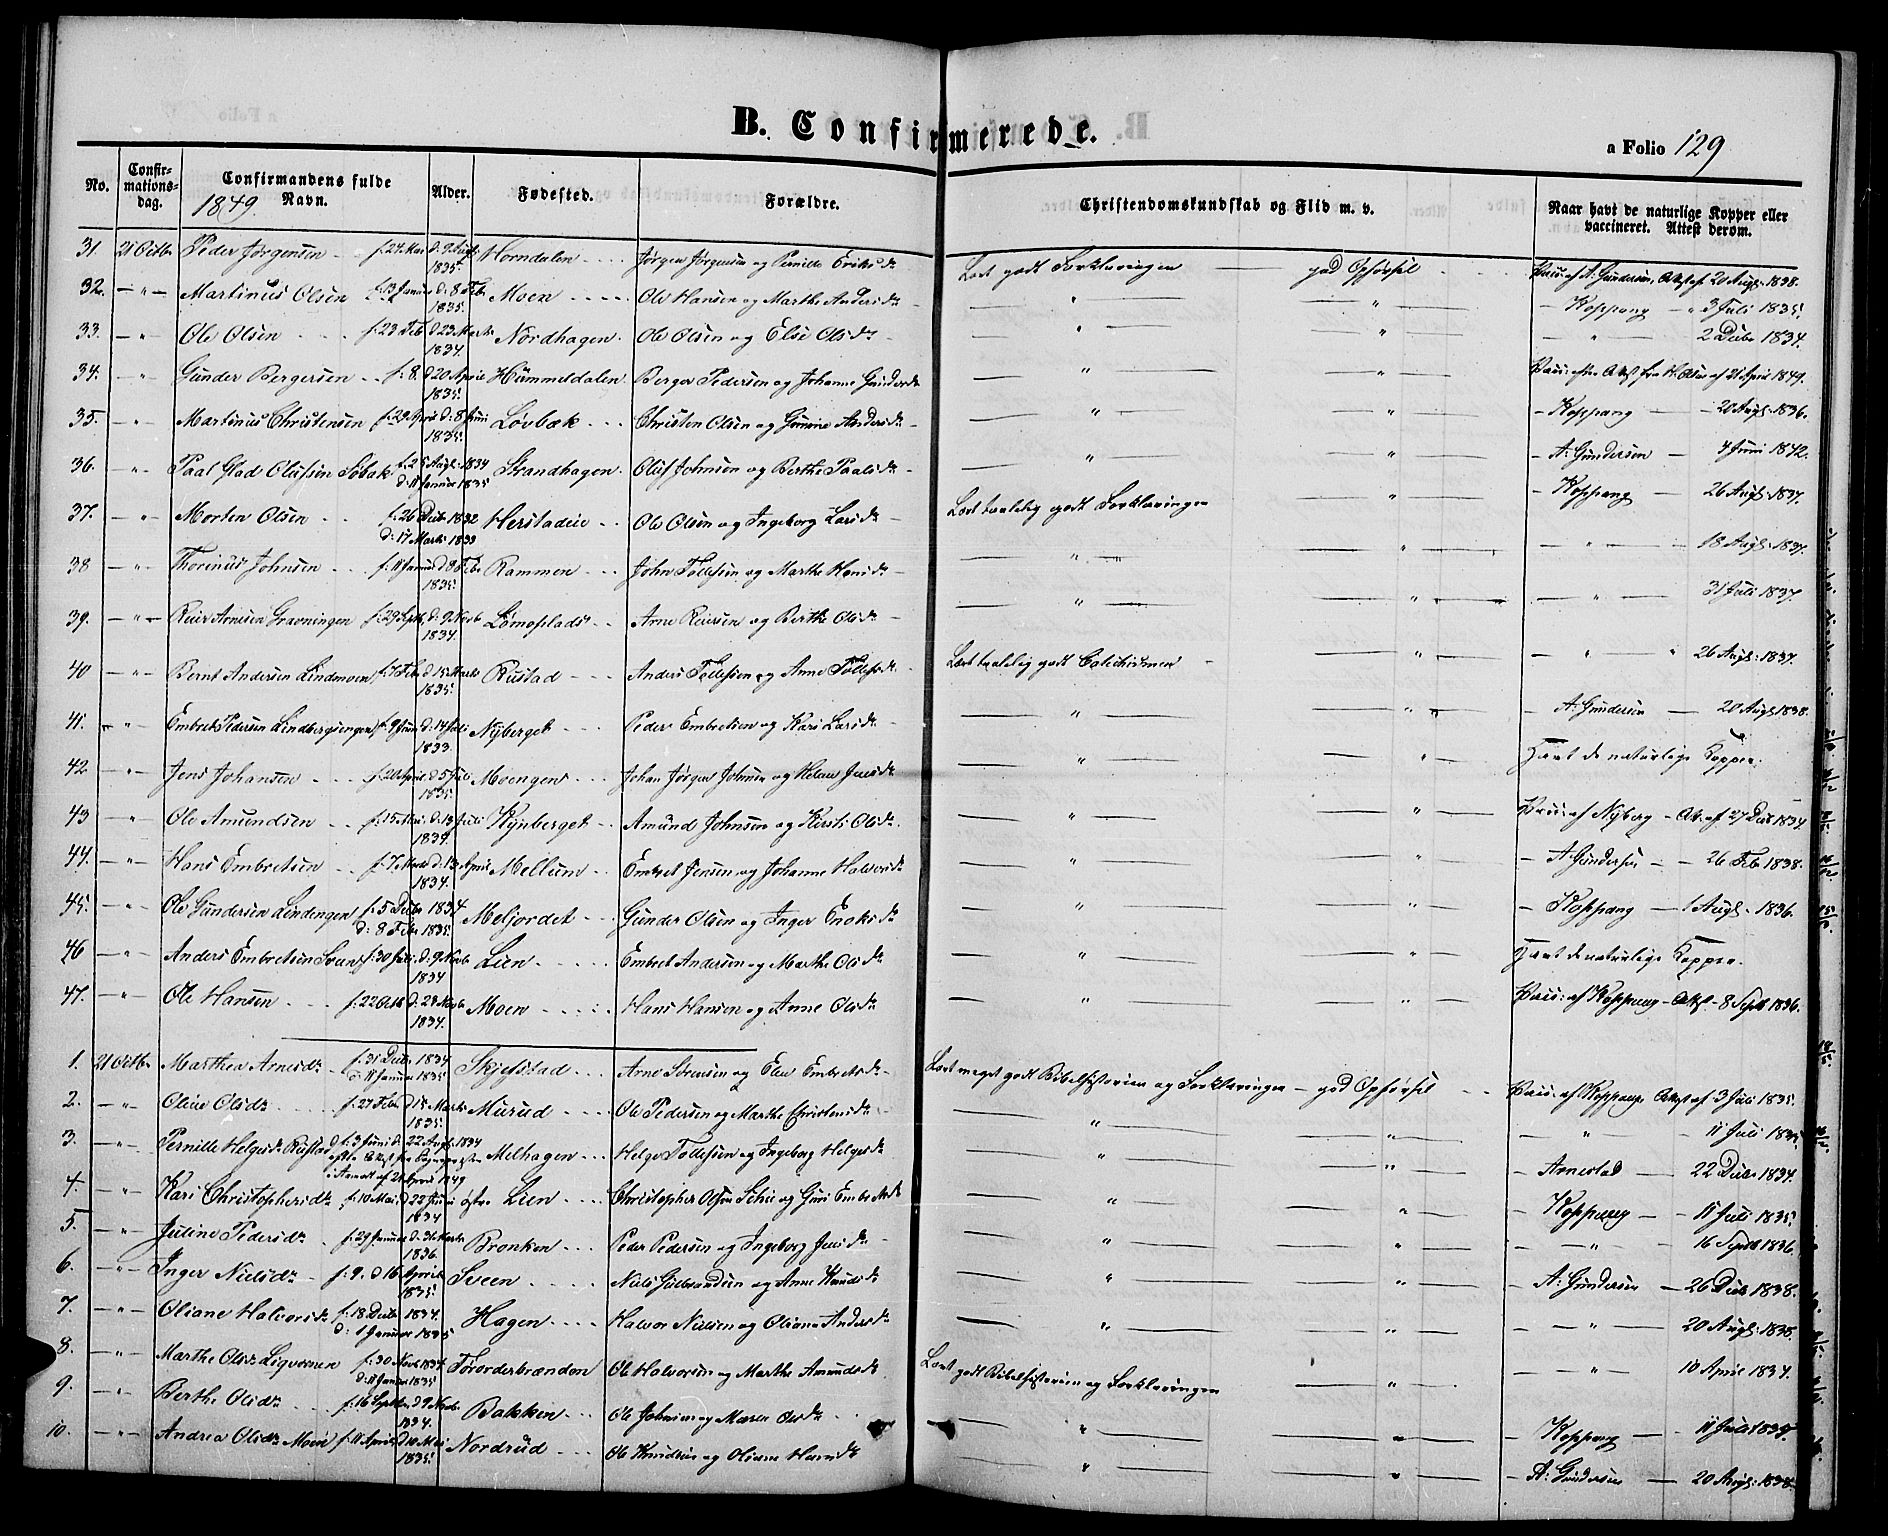 B. Confirmerede.
a Folio 129
No.
Confir-
mations-
dag.
Confirmandens fulde
Navn.
1849.
Alder.
Fødested.
Forældre.
Christendomskundskab og Flid m. v.
Naar havt de naturlige Kopper eller
vaccineret. Attest derom.
31. 21 Octbr Peder Jørgensen f. 27 Mai d: 9 1835. Horndalen Jørgen Jørgensen og Pernille Eriksdr Læst godt Forklaringen god Opførsel Vacc: af A: Gundersen, Attest af 20 Augs. 1838.
32. — " — Martinus Olsen f. 13 Januar d: 8 Feb 1835. Moen Ole Hansen og Marthe Andersdr " " — Koppang — 3 Juli 1835.
33. — " — Ole Olsen f. 23 Feb d 23 Marts 1834. Nordhagen Ole Olsen og Else Olsdr " " " 2 Debr 1834.
34. — " Gunder Bergersen f: 8. d 20 April 1835. Hummeldalen Berger Pedersen og Johanne Gundersdr " " Vacc: efter Attest fra af 21 April 1849.
35. — " — Martinus Christensen f. 29 April d: 8 Juni 1835. Løvbæk Christen Olsen og Andersdr " " — Koppang — 20 Augs. 1836.
36. — " — Paal Glad Olufsen Søbak f. 25 Augs: 1834 d: 11 Januar 1835 Strandhagen Oluf Johnsen og Berthe Paalsdr " " — A: Gundersen — 4 Juni 1842.
37. — " — Morten Olsen f: 26 Debr 1832 d: 17 Marts 1833 Herstadeie Ole Olsen og Ingeborg Larsdr Læst taalelig godt Forklaringen " — Koppang — 26 Augs. 1837.
38 — " — Thorinus Johnsen f: 11 Januar d 8 Febr 1835. Rammen John Tollefsen og Marthe Hansdr " " " 18 Augs. 1837.
39. — " — Reier Arnesen Gravningen f. 29 Septr d: 9 Novb 1834. Lømoplads Arne Reiersen og Berthe Olsdr " " " 31 Juli 1837.
40 — " — Bernt Andersen Lindmoen f. 7 Feb d 15 Marts 1835. Rustad Anders Tollefsen og Anne Tollefsdr Læst taalelig godt Catechismen " " 26 Augs. 1837.
41. — " — Embret Pedersen Lindbergsengen f. 9 Juni d: 14 Juli 1833. Nyberget Peder Embretsen og Kari Larsdr " " — A: Gundersen — 20 Augs 1838.
42 — " — Jens Johansen f. 20 April d 5 Juli 1835. Moengen Johan Jørgen Johnsen og Helene Jensdr " " Havt de naturlige Kopper.
43 — " — Ole Amundsen f. 15 Mai d: 13 Juli 1834. Kynberget Amund Johnsen og Kirsti Olsdr " " Vacc: af Nyberg — At. af 27 Debr 1834.
44. — " — Hans Embretsen f. 7 Marts d: 13 April 1834. Mellum Embret Jensen og Johanne Halvorsdr " " — A: Gundersen — 26 Feb 1838.
45. — " — Ole Gundersen Lindengen f: 5 Debr 1834 d: 8 Febr 1835. Meljordet Gunder Olsen og Inger Enoksdr " " — Koppang — 1 Augs. 1836.
46 — " — Anders Embretsen Svan f. 30 Juli d: 9 Novb 1834 Lien Embret Andersen og Marthe Olsdr " " Havt de naturlige Kopper.
47. — " — Ole Hansen f. 22 Octb d: 24 Novb 1834. Moen Hans Hansen og Anne Olsdr " " Vacc: af Koppang — Attest — 8 Septbr 1836.
1. 21 Octbr Marthea Arnesdr f. 31 Debr 1834. d: 11 Januar 1835 Skjefstad Arne Sørensen og Elen Embretsdr Læst meget godt Bibelhistorien og Forklaringen — god Opførsel Vacc: af Koppang Attest af 3 Juli 1835.
2. — " — Oline Olsdr f. 27 Febr d 15 Marts 1835. Murud Ole Pedersen og Marthe Christensdr " " " 11 Juli 1835
3. — " — Pernille Helgesdr Rustad f. 3 Juni d: 22 Augs. 1834 efter Attest fra af 21 April 1849 Melhagen Helge Tollefsen og Ingeborg Helgesdr " " — Arnestad — 22 Debr 1834.
4. — " — Kari Christophersdr f. 10 Mai d 22 Juni 1834 Lien Christopher Olsen og Guri Embretsdr " " — Koppang — 11 Juli 1835.
5. — " — Juline Pedersdr f. 27 Januar d: 3 Marts 1836. Bronken Peder Pedersen og Ingeborg Jensdr " " " 16 Septbr 1836.
6. — " — Inger Nielsdr f. 9. d 16 April 1835. Sveen Niels Gulbrandsen og Anne Knudsdr " " — A: Gundersen — 26 Debr 1838.
7. — " — Oliane Halvorsdr f: 18 Debr 1834. d: 1 Januar 1835 Hagen Halvor Nielsen og Oliane Andersdr " " " 20 Augs: 1838.
8. — " — Marthe Olsdr f. 30 Novb 1834. d: 11 Januar 1835 Ole Halvorsen og Marthe Amundsdr Læst godt Bibelhistorien og Forklaringen " " 10 April 1837.
9. — " — Berthe Olsdr f. 16 Septbr d 9 Novbr 1834. Bakken Ole Johnsen og Maren Olsdr " " — Koppang — 11 Juli 1835.
10. — " — Andrea Olsdr Moen f. 11 April d 10 Mai 1835. Nordrud Ole Knudsen og Oliane Hansdr " " — A: Gundersen — 20 Augs: 1838.